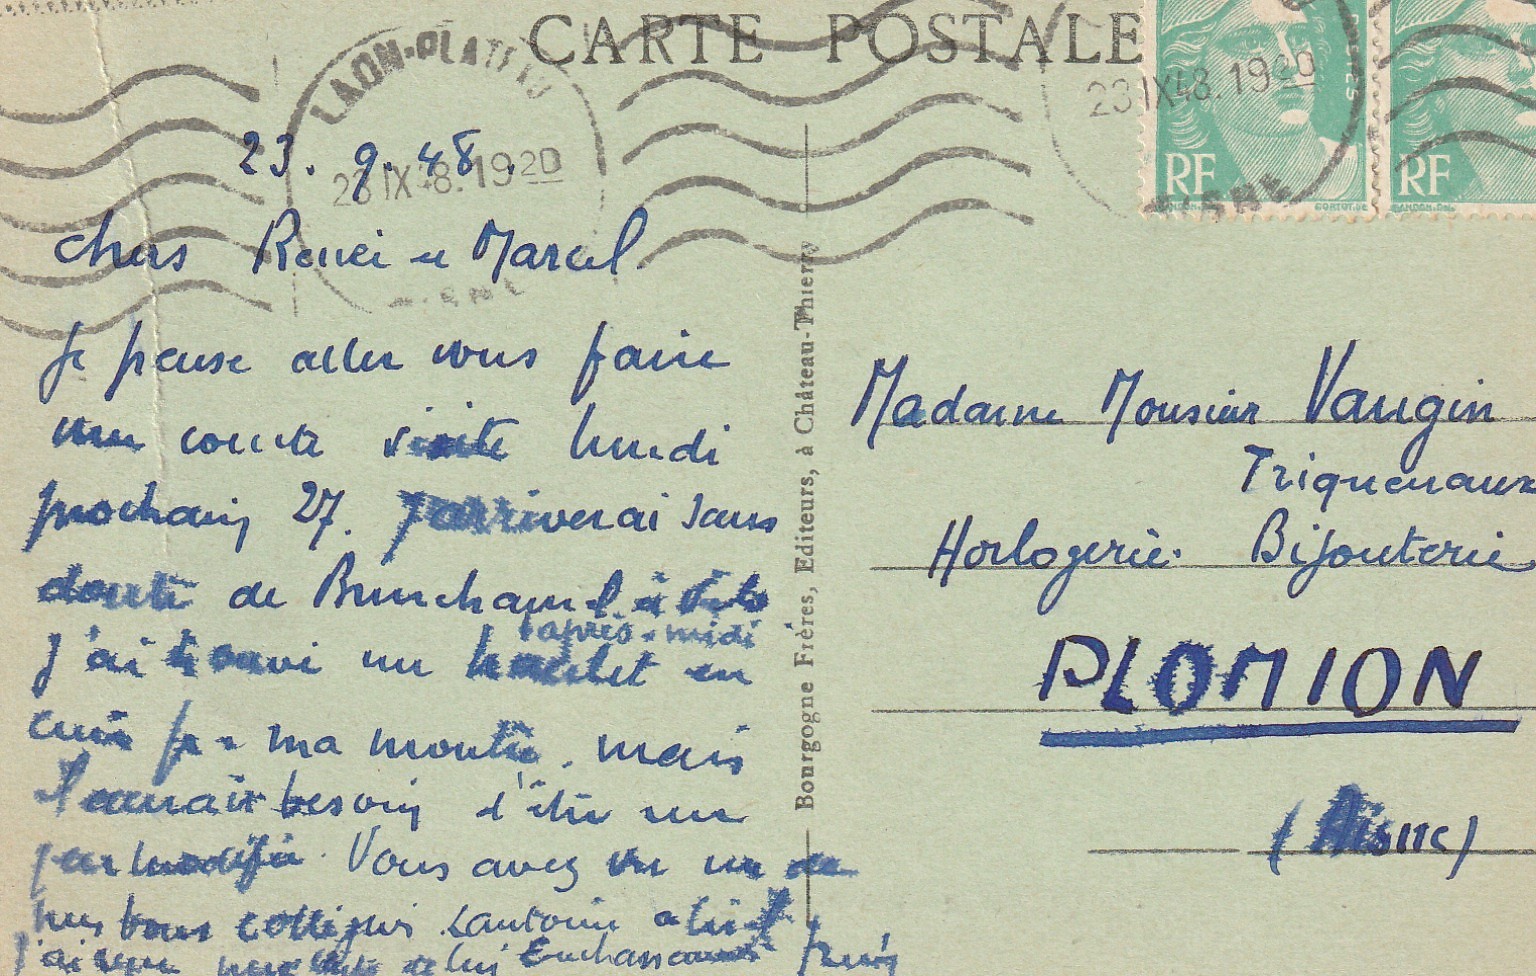 CARTE POSTALE
LAON-PLATEAU
23 IX 48. 19 20
AISNE
23 IX 48. 19 20
AISNE
RF
RF
23. 9. 48.
Chers Renée et Marcel
Je pense aller vous faire
une courte visite lundi
prochain 27. J'arriverai sans
doute de Brunehamel
après-midi
J'ai trouvé un bracelet en
cuir pr ma montre. mais
il aurait besoin d'être un
peu modifié. Vous avez vu un de
nos bons collègues
j'ai
Bourgogne Frères, Editeurs, à Château-Thierry
Madame Monsieur Vaugin
Triquenaux
Horlogerie. Bijouterie
PLOMION
(Aisne)